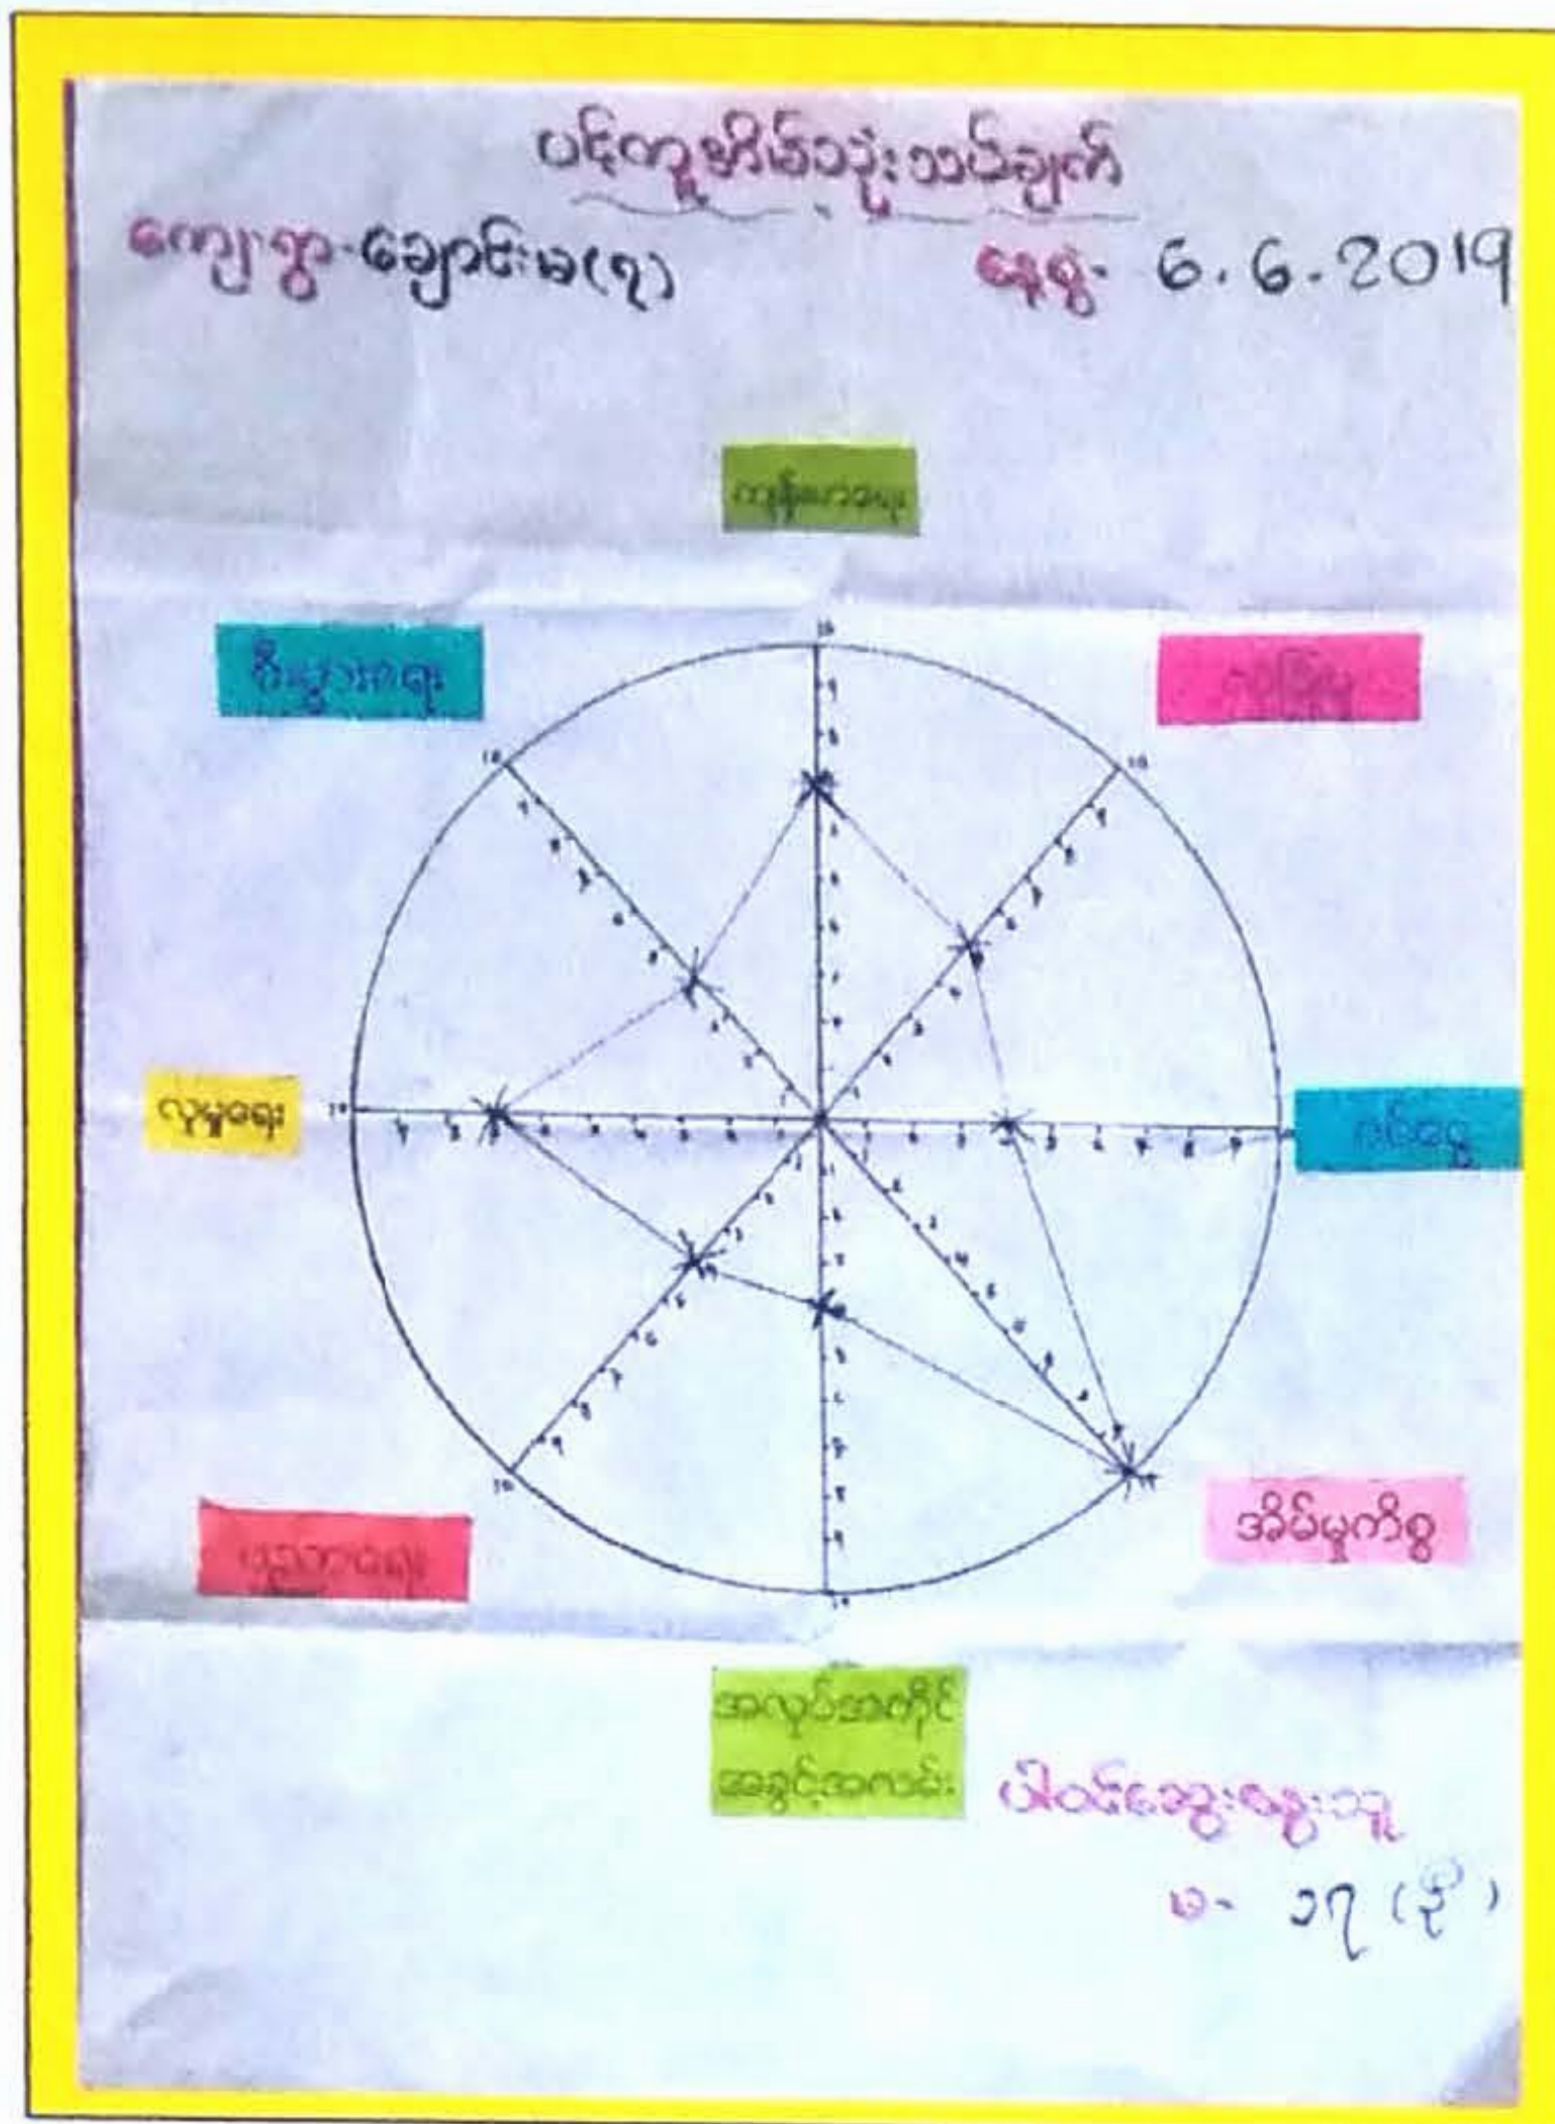 ပင့်ကူအိမ်သုံးသပ်ချက်
ကျေးရွာ-ချောင်းမ(၇) နေ့စွဲ- 6.6.2019
ကျန်းမာရေး
စီးပွားရေး
လုံခြုံမှု
လူမှုရေး
ပညာရေး
အိမ်မှုကိစ္စ
အလုပ်အကိုင်
အခွင့်အလမ်း
ပါဝင်ဆွေးနွေးသူ
မ- ၁၇ (ဦး)